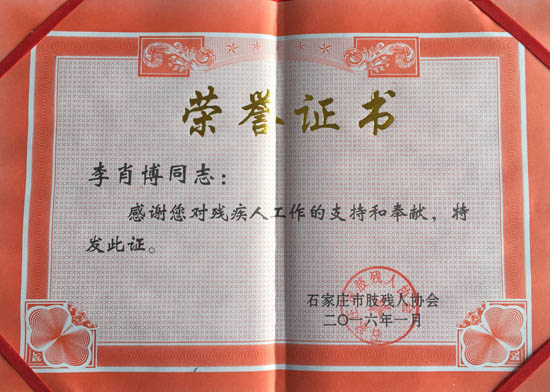 荣誉证书
李肖博同志：
感谢您对残疾人工作的支持和奉献，特
发此证。
石家庄市肢残人协会
二〇一六年一月